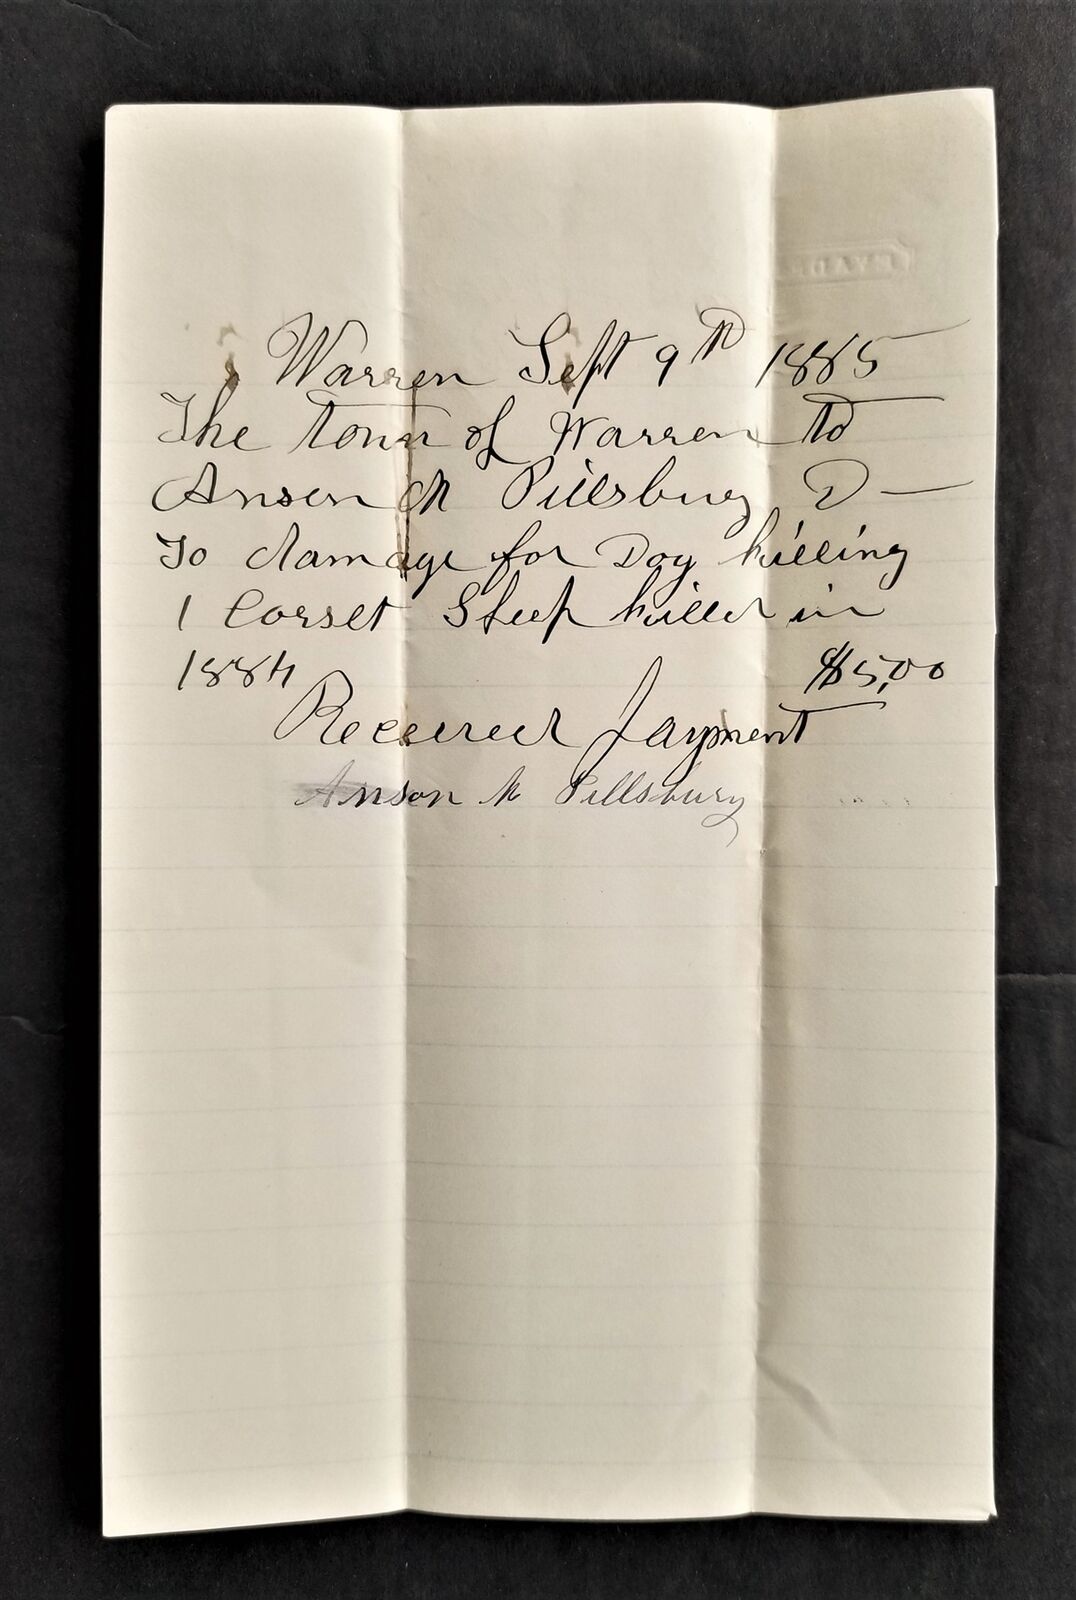 Warren Sept 9th 1885
The town of Warren to
Anson M Pillsbury D —
To damage for Dog killing
1 Corset Sheep killed in
1884 $5,00
Received Payment
Anson M Pillsbury